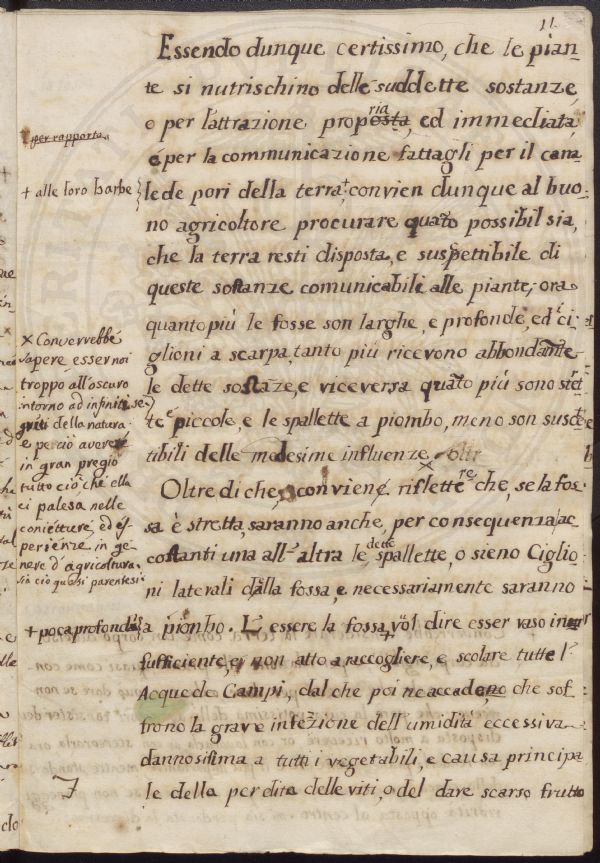 11
Essendo dunque certissimo, che le pian=
te si nutrischino delle suddette sostanze,
o per l'attrazione propria, ed immediata
o per la communicazione fattagli per il cana
le de pori della terra,+ convien dunque al buo=
no agricoltore procurare quato possibil sia,
che la terra resti disposta, e suspettibile di
queste sostanze comunicabili alle piante, ora
quanto più le fosse son larghe, e profonde, ed i ci=
glioni a scarpa, tanto più ricevono abbondante=
le dette sostaze, e viceversa quato più sono stret=
te e piccole, e le spallette a piombo, meno son suscet=
tibili delle medesime influenze
Oltre di che, conviene riflettere che, se la fos=
sa è stretta, saranno anche, per consequenza, ac
costanti una all'altra le dette spallette, o sieno Ciglio=
ni laterali dalla fossa, e necessariamente saranno
a piombo. L'essere la fossa + vol dire esser vaso in
sufficiente, e non atto a raccogliere, e scolare tutte l'
Acque de Campi, dal che poi ne accade, che sof=
frono la grave infezione dell'umidità eccessiva
dannosissima a tutti i vegetabili, e causa principa
le della perdita delle viti, o del dare scarso frutto
per rapporto
+ alle loro barbe
x Converrebbe
sapere esser noi
troppo all'oscuro
intorno ad infiniti se=
griti della natura
e perciò avere
in gran pregio
tutto ciò, che ella
ci palesa nelle
conietture, ed es=
perienze in ge=
nere d'agricoltura
sia ciò quasi parentesi
+ poca profonda